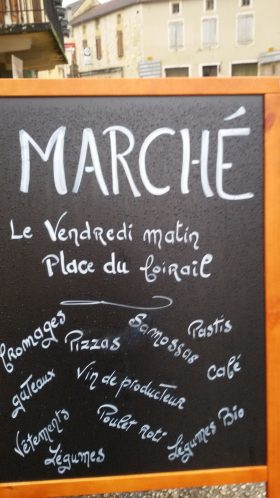 MARCHÉ
Le Vendredi matin
Place du foirail
fromages
Pizzas
Samossas
Pastis
gateaux
Vin de producteur
Café
Vêtements
Poulet Roti
Légumes Bio
Légumes